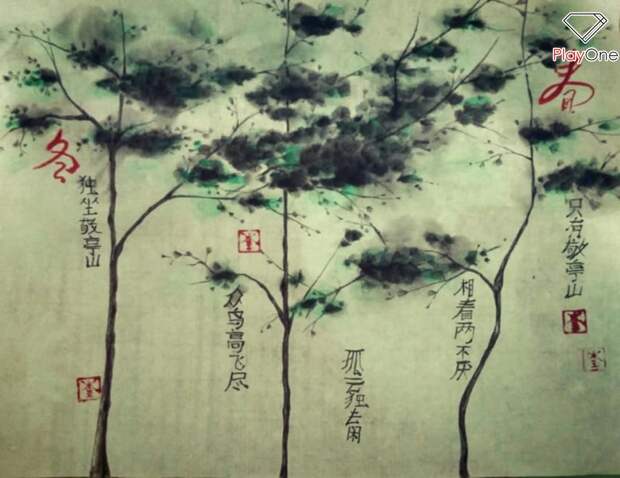 PlayOne
冬
独坐敬亭山
众鸟高飞尽
孤云独去闲
相看两不厌
春
只有敬亭山